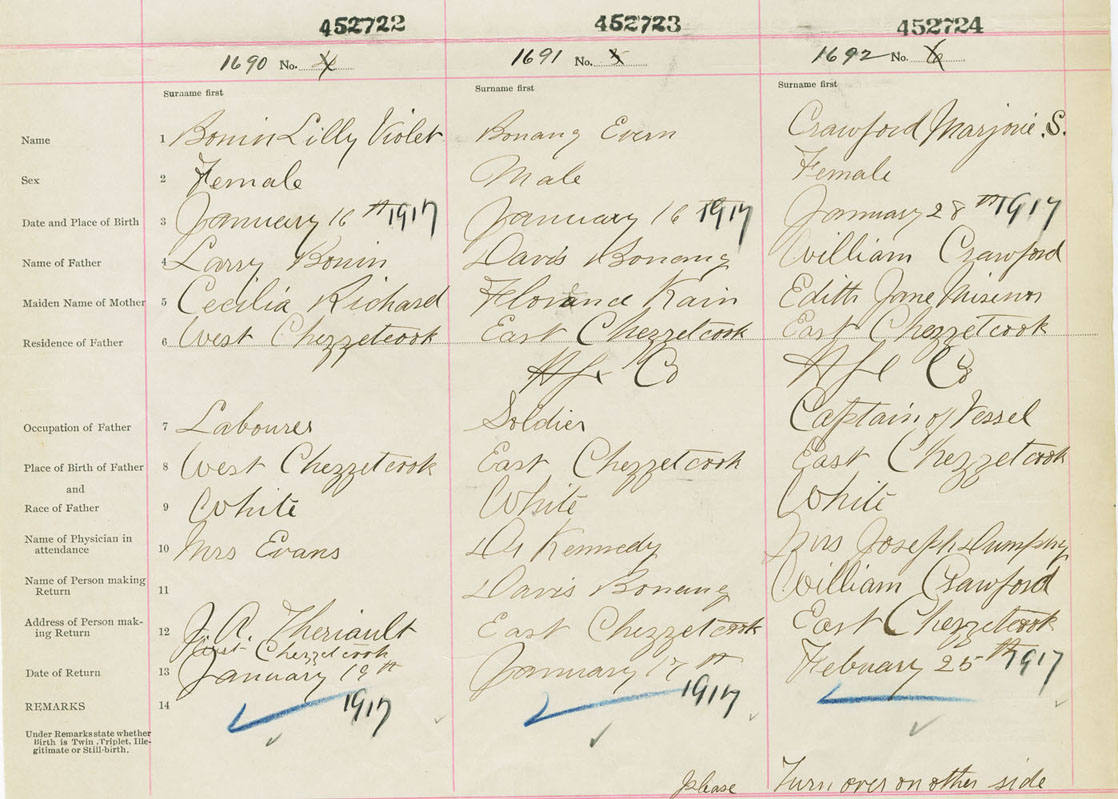 452722 452723 452724
1690 No. 4 1691 No. 5 1692 No. 6
Surname first Surname first Surname first
Name 1 Bonin Lilly Violet Bonang Evern Crawford Marjorie. S.
Sex 2 Female Male Female
Date and Place of Birth 3 January 16th 1917 January 16 1917 January 28th 1917
Name of Father 4 Larry Bonin Davis Bonang William Crawford
Maiden Name of Mother 5 Cecilia Richard Florance Kain Edith Jane Misenor
Residence of Father 6 West Chezzetcook East Chezzetcook East Chezzetcook
Hfx Co Hfx Co
Occupation of Father 7 Labourer Soldier Captain of Vessel
Place of Birth of Father 8 West Chezzetcook East Chezzetcook East Chezzetcook
and
Race of Father 9 White White White
Name of Physician in attendance 10 Mrs Evans Dr Kennedy Mrs Joseph Dumphy
Name of Person making Return 11 Davis Bonang William Crawford
Address of Person making Return 12 J. A. Theriault East Chezzetcook East Chezzetcook
Chezzetcook
Date of Return 13 January 19th 1917 January 17th 1917 February 25th 1917
REMARKS 14
Under Remarks state whether
Birth is Twin, Triplet, Ille-
gitimate or Still-birth.
please Turn over on other side